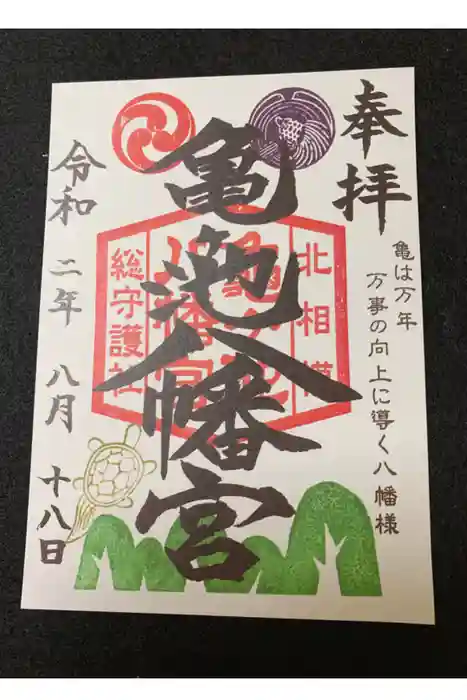 奉拝
亀は万年
万事の向上に導く八幡様
北相模
亀ヶ池
八幡宮
総守護社
亀ヶ池八幡宮
令和二年八月十八日